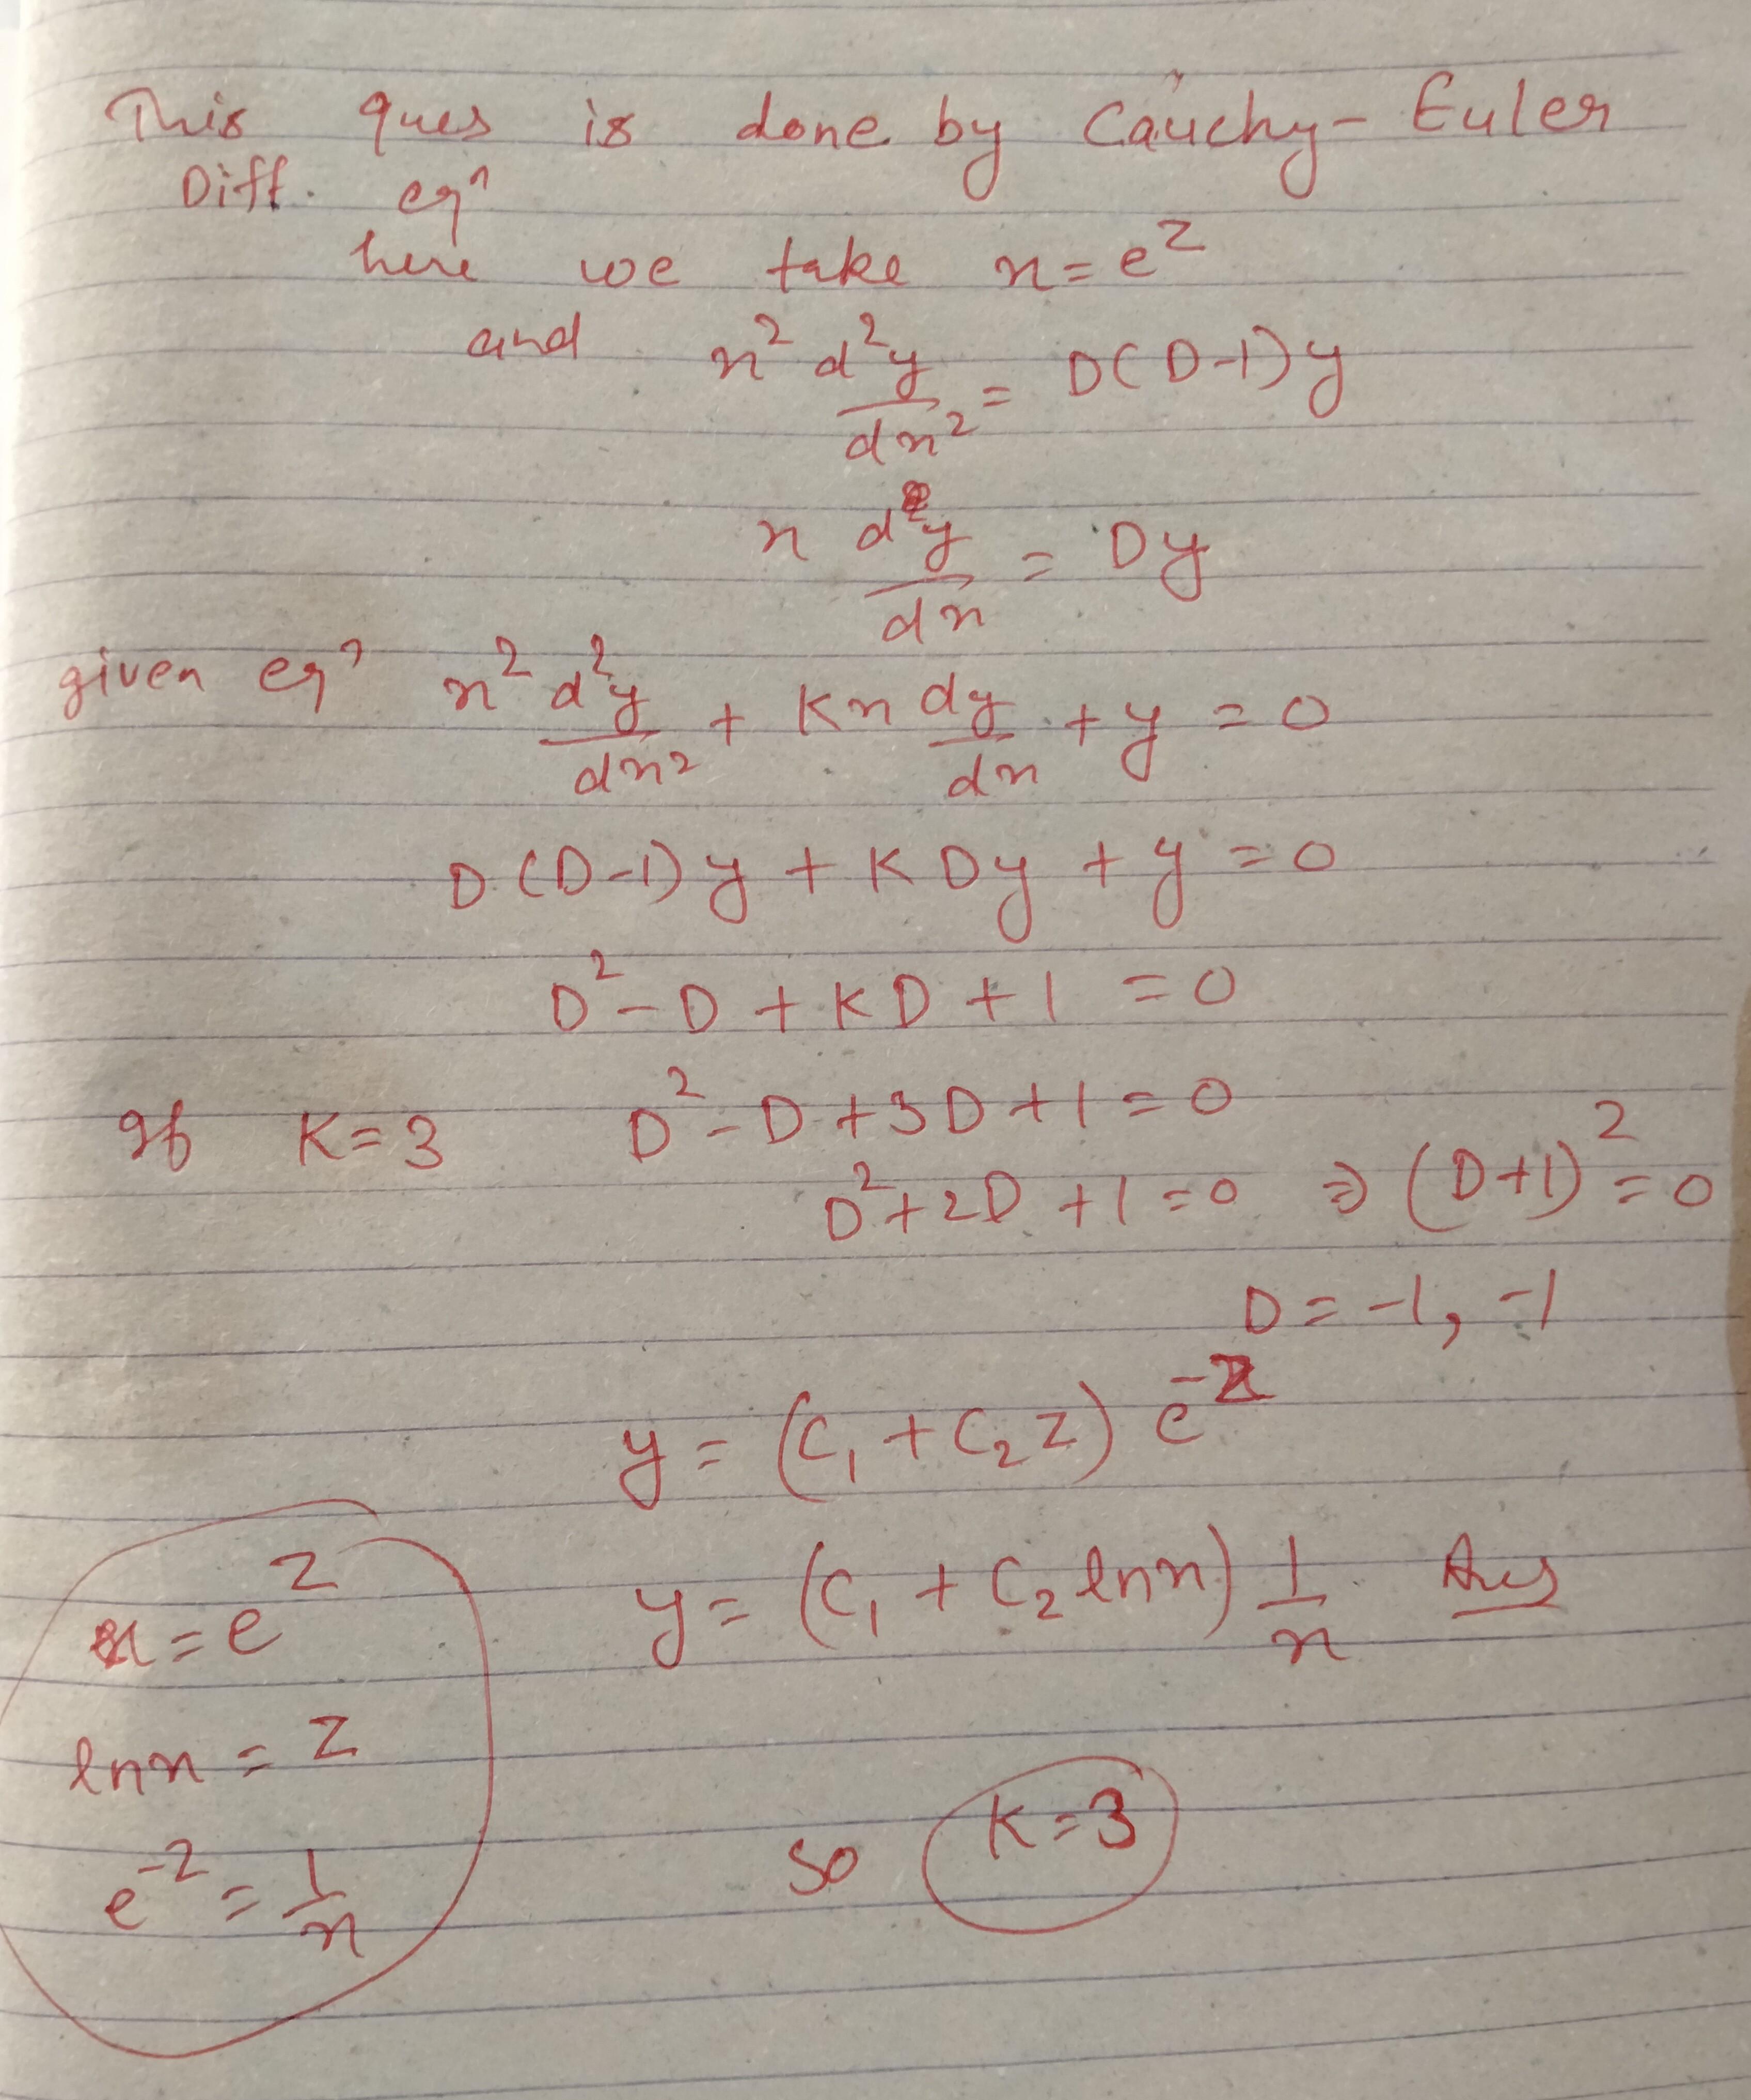 This ques is done by Cauchy-Euler
Diff. eqⁿ
here we take x = e^z
and x² d²y/dx² = D(D-1)y
x dy/dx = Dy
given eqⁿ x² d²y/dx² + Kx dy/dx + y = 0
D(D-1)y + KDy + y = 0
D² - D + KD + 1 = 0
If K = 3 D² - D + 3D + 1 = 0
D² + 2D + 1 = 0 ⇒ (D+1)² = 0
D = -1, -1
y = (C₁ + C₂ z) e^-z
y = (C₁ + C₂ ln x) 1/x Ans
x = e^z
ln x = z
e^-z = 1/x
so K = 3